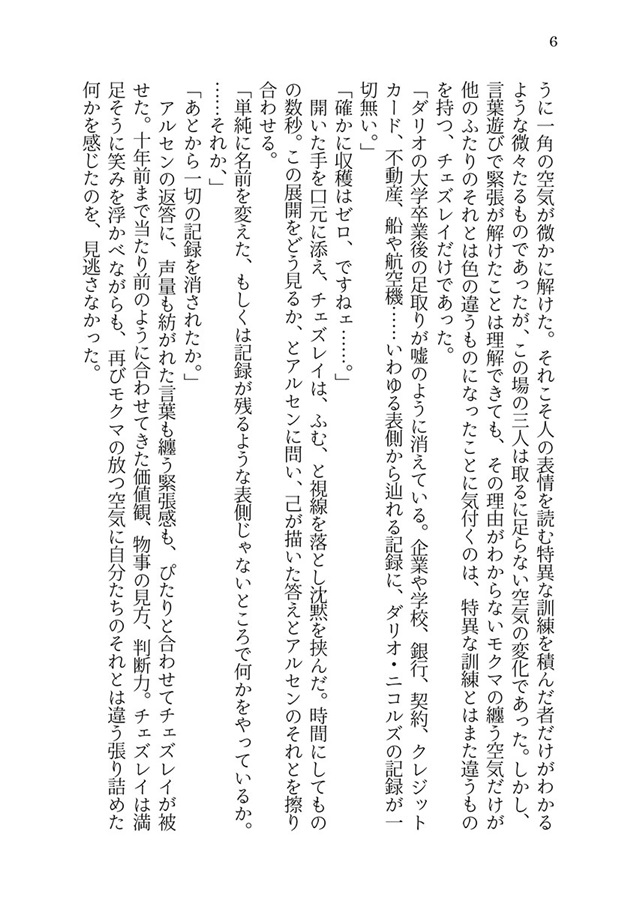 6
うに一角の空気が微かに解けた。それこそ人の表情を読む特異な訓練を積んだ者だけがわかる
ような微々たるものであったが、この場の三人は取るに足らない空気の変化であった。しかし、
言葉遊びで緊張が解けたことは理解できても、その理由がわからないモクマの纏う空気だけが
他のふたりのそれとは色の違うものになったことに気付くのは、特異な訓練とはまた違うもの
を持つ、チェズレイだけであった。
「ダリオの大学卒業後の足取りが嘘のように消えている。企業や学校、銀行、契約、クレジット
カード、不動産、船や航空機……いわゆる表側から辿れる記録に、ダリオ・ニコルズの記録が一
切無い。」
「確かに収穫はゼロ、ですねェ……。」
　開いた手を口元に添え、チェズレイは、ふむ、と視線を落とし沈黙を挟んだ。時間にしてもの
の数秒。この展開をどう見るか、とアルセンに問い、己が描いた答えとアルセンのそれとを擦り
合わせる。
「単純に名前を変えた、もしくは記録が残るような表側じゃないところで何かをやっているか。
……それか、」
「あとから一切の記録を消されたか。」
　アルセンの返答に、声量も紡がれた言葉も纏う緊張感も、ぴたりと合わせてチェズレイが被
せた。十年前まで当たり前のように合わせてきた価値観、物事の見方、判断力。チェズレイは満
足そうに笑みを浮かべながらも、再びモクマの放つ空気に自分たちのそれとは違う張り詰めた
何かを感じたのを、見逃さなかった。